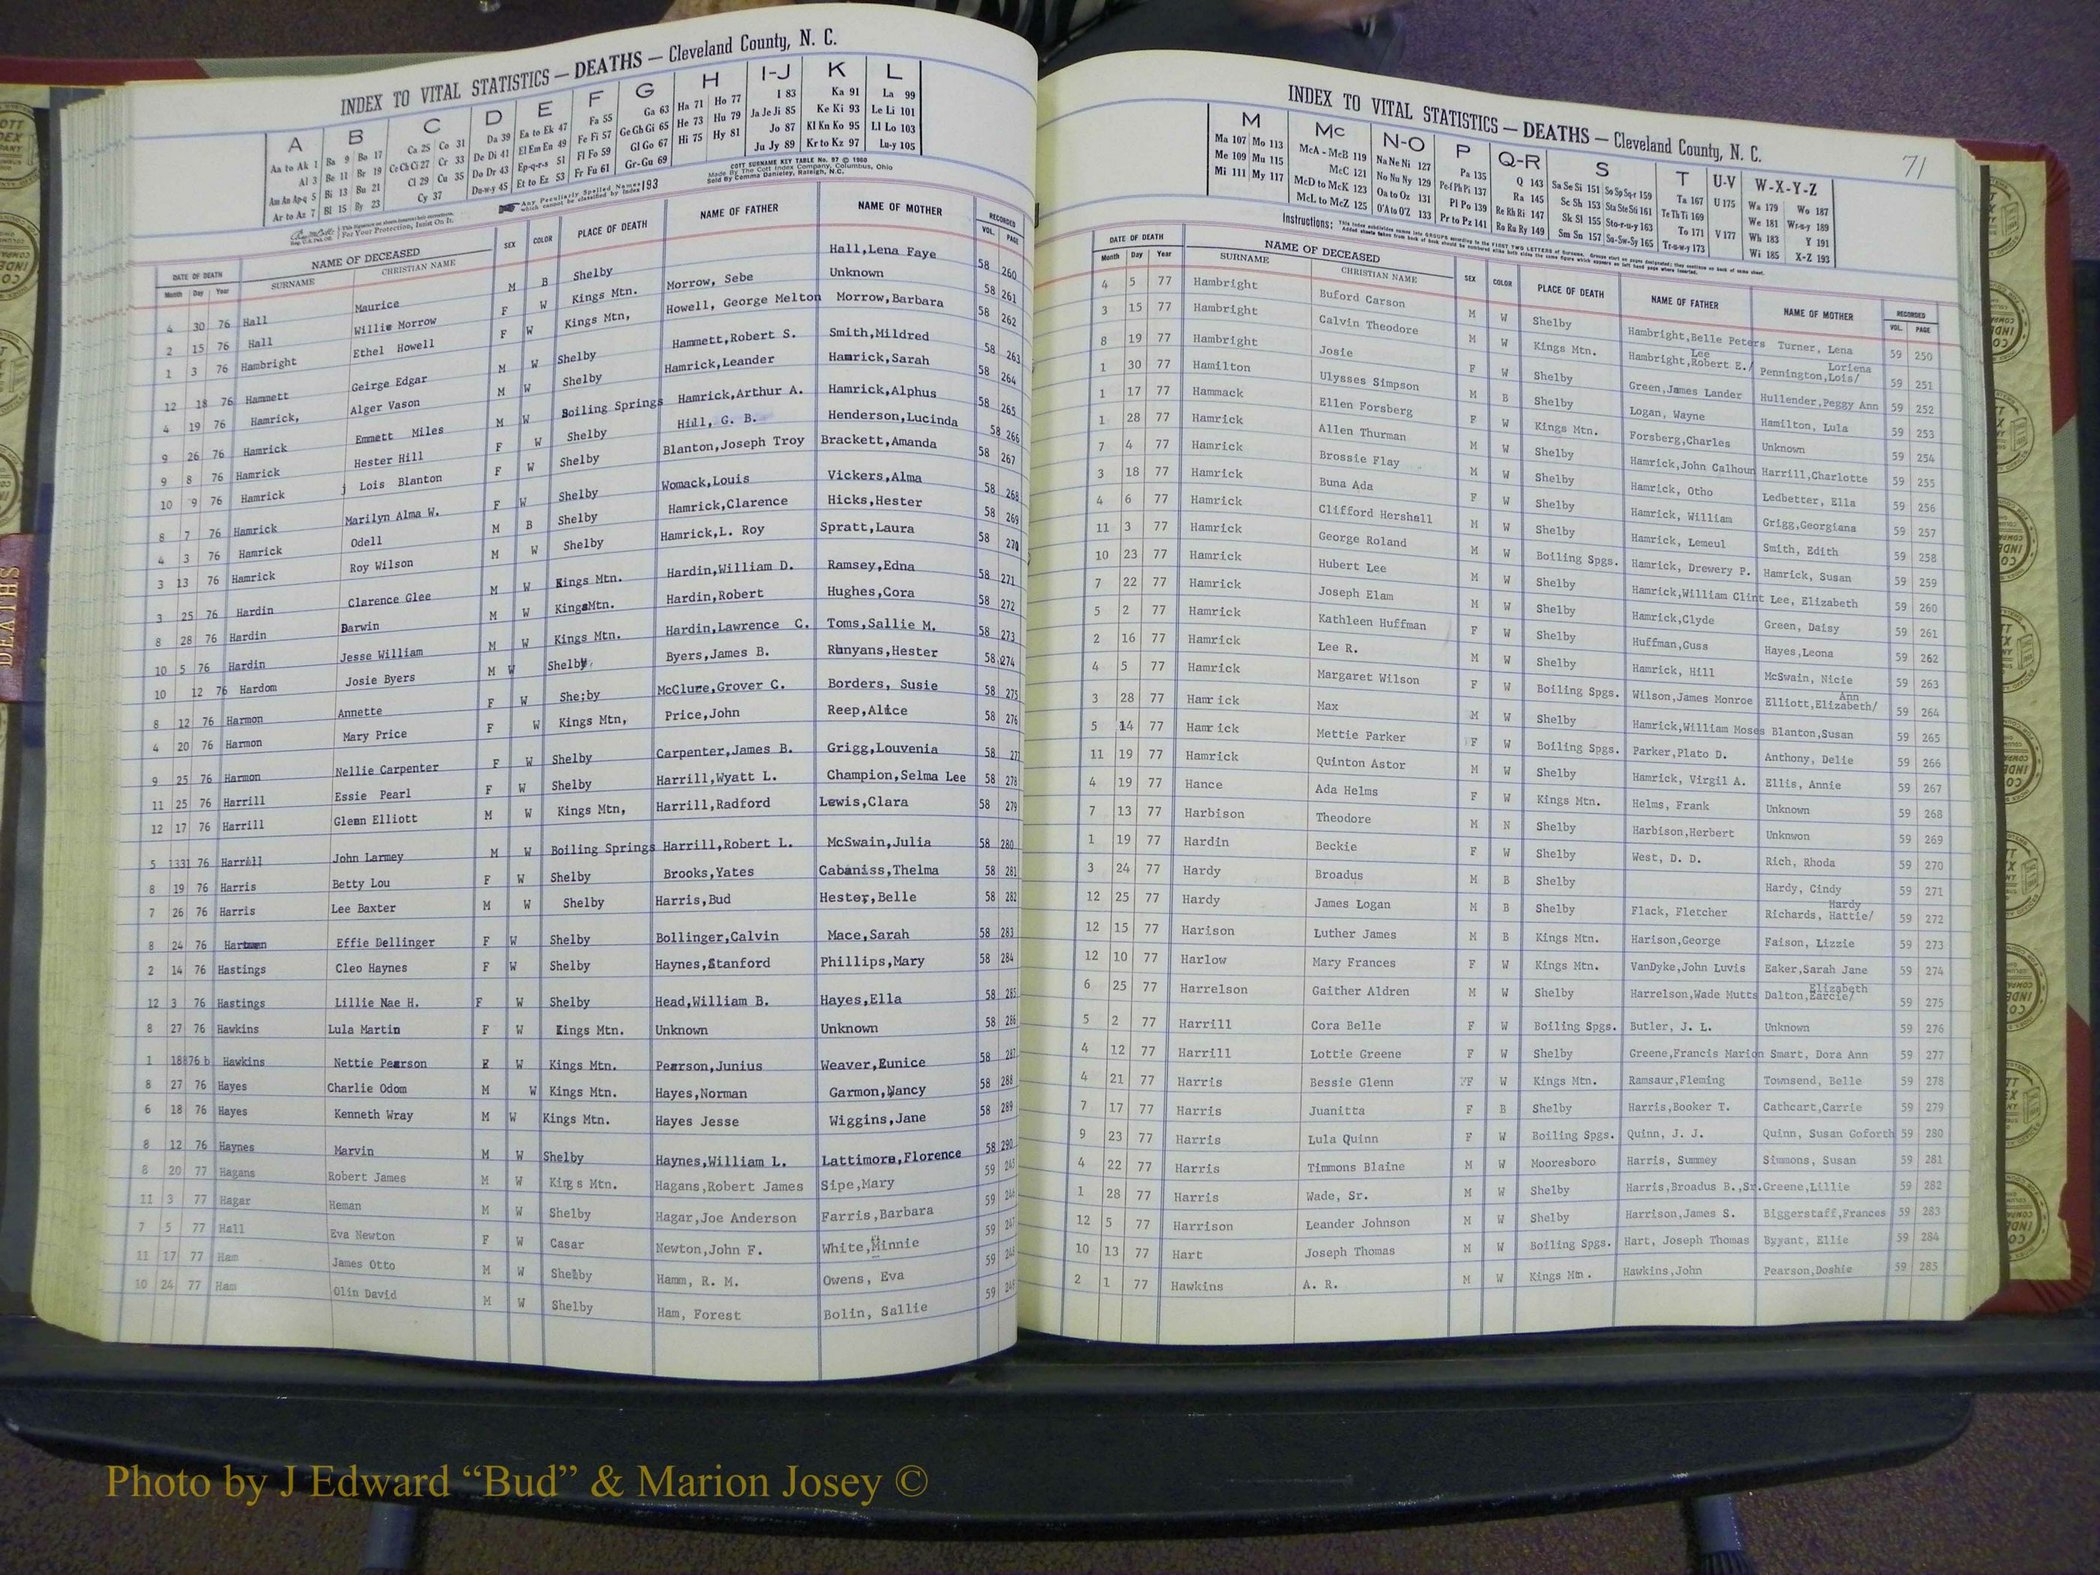 INDEX TO VITAL STATISTICS — DEATHS — Cleveland County, N. C.
A B C D E F G H I-J K L
Aa to Ak 1 Ba 9 Bo 17 Ca 25 Co 31 Da 39 Ea to Ek 47 Fa 55 Ga 63 Ha 71 Ho 77 I 83 Ka 91 La 99
Al 3 Be 11 Br 19 Ce Ch Ci 27 Cr 33 De Di 41 El Em En 49 Fe Fi 57 Ge Gh Gi 65 He 73 Hu 79 Ja Je Ji 85 Ke Ki 93 Le Li 101
Am An Ap-q 5 Bi 13 Bu 21 Cl 29 Cu 35 Do Dr 43 Ep-q-r-s 51 Fl Fo 59 Gl Go 67 Hi 75 Hy 81 Jo 87 Kl Kn Ko 95 Ll Lo 103
Ar to Az 7 Bl 15 By 23 Cy 37 Du-w-y 45 Et to Ez 53 Fr Fu 61 Gr-Gu 69 Ju Jy 89 Kr to Kz 97 Lu-y 105
COTT SURNAME KEY TABLE No. 97 © 1960
Made By The Cott Index Company, Columbus, Ohio
Sold By Comma Danieley, Raleigh, N.C.
Any Peculiarly Spelled Names which cannot be classified by Index 193
For Your Protection, Insist On It.
DATE OF DEATH NAME OF DECEASED SEX COLOR PLACE OF DEATH NAME OF FATHER NAME OF MOTHER RECORDED
Month Day Year SURNAME CHRISTIAN NAME VOL. PAGE
4 30 76 Hall Maurice M B Shelby Hall,Lena Faye 58 260
2 15 76 Hall Willie Morrow F W Kings Mtn. Morrow, Sebe Unknown 58 261
1 3 76 Hambright Ethel Howell F W Kings Mtn, Howell, George Melton Morrow,Barbara 58 262
12 18 76 Hammett Geirge Edgar M W Shelby Hammett,Robert S. Smith,Mildred 58 263
4 19 76 Hamrick, Alger Vason M W Shelby Hamrick,Leander Hamrick,Sarah 58 264
9 26 76 Hamrick Emmett Miles M W Boiling Springs Hamrick,Arthur A. Hamrick,Alphus 58 265
9 8 76 Hamrick Hester Hill F W Shelby Hill, G. B. Henderson,Lucinda 58 266
10 9 76 Hamrick j Lois Blanton F W Shelby Blanton,Joseph Troy Brackett,Amanda 58 267
8 7 76 Hamrick Marilyn Alma W. F W Shelby Womack,Louis Vickers,Alma 58 268
4 3 76 Hamrick Odell M B Shelby Hamrick,Clarence Hicks,Hester 58 269
3 13 76 Hamrick Roy Wilson M W Shelby Hamrick,L. Roy Spratt,Laura 58 270
3 25 76 Hardin Clarence Glee M W Kings Mtn. Hardin,William D. Ramsey,Edna 58 271
8 28 76 Hardin Darwin M W KingsMtn. Hardin,Robert Hughes,Cora 58 272
10 5 76 Hardin Jesse William M W Kings Mtn. Hardin,Lawrence C. Toms,Sallie M. 58 273
10 12 76 Hardom Josie Byers M W Shelby Byers,James B. Runyans,Hester 58 274
8 12 76 Harmon Annette F W She;by McClure,Grover C. Borders, Susie 58 275
4 20 76 Harmon Mary Price F W Kings Mtn, Price,John Reep,Alice 58 276
9 25 76 Harmon Nellie Carpenter F W Shelby Carpenter,James B. Grigg,Louvenia 58 277
11 25 76 Harrill Essie Pearl F W Shelby Harrill,Wyatt L. Champion,Selma Lee 58 278
12 17 76 Harrill Glenn Elliott M W Kings Mtn, Harrill,Radford Lewis,Clara 58 279
5 1331 76 Harrill John Larmey M W Boiling Springs Harrill,Robert L. McSwain,Julia 58 280
8 19 76 Harris Betty Lou F W Shelby Brooks,Yates Cabaniss,Thelma 58 281
7 26 76 Harris Lee Baxter M W Shelby Harris,Bud Hester,Belle 58 282
8 24 76 Hartman Effie Dellinger F W Shelby Bollinger,Calvin Mace,Sarah 58 283
2 14 76 Hastings Cleo Haynes F W Shelby Haynes,Stanford Phillips,Mary 58 284
12 3 76 Hastings Lillie Nae H. F W Shelby Head,William B. Hayes,Ella 58 285
8 27 76 Hawkins Lula Martin F W Kings Mtn. Unknown Unknown 58 286
1 18 76 b Hawkins Nettie Pearson F W Kings Mtn. Pearson,Junius Weaver,Eunice 58 287
8 27 76 Hayes Charlie Odom M W Kings Mtn. Hayes,Norman Garmon,Nancy 58 288
6 18 76 Hayes Kenneth Wray M W Kings Mtn. Hayes Jesse Wiggins,Jane 58 289
8 12 76 Haynes Marvin M W Shelby Haynes,William L. Lattimore,Florence 58 290
8 20 77 Hagans Robert James M W Kings Mtn. Hagans,Robert James Sipe,Mary 59 245
11 3 77 Hagar Heman M W Shelby Hagar,Joe Anderson Farris,Barbara 59 246
7 5 77 Hall Eva Newton F W Casar Newton,John F. White,Minnie 59 247
11 17 77 Ham James Otto M W Shelby Hamm, R. M. Owens, Eva 59 248
10 24 77 Ham Olin David M W Shelby Ham, Forest Bolin, Sallie 59 249
INDEX TO VITAL STATISTICS — DEATHS — Cleveland County, N. C.
71
M Mc N-O P Q-R S T U-V W-X-Y-Z
Ma 107 Mo 113 McA - McB 119 Na Ne Ni 127 Pa 135 Q 143 Sa Se Si 151 So Sp Sq-r 159 Ta 167 U 175 Wa 179 Wo 187
Me 109 Mu 115 McC 121 No Nu Ny 129 Pe-f Ph Pi 137 Ra 145 Sc Sh 153 Sta Ste Sti 161 Te Th Ti 169 We 181 Wr-u-y 189
Mi 111 My 117 McD to McK 123 Oa to Oz 131 Pl Po 139 Re Rh Ri 147 Sk Sl 155 Sto-r-u-y 163 To 171 V 177 Wh 183 Y 191
McL to McZ 125 O'A to O'Z 133 Pr to Pz 141 Ro Ru Ry 149 Sm Sn 157 Su-Sw-Sy 165 Tr-u-w-y 173 Wi 185 X-Z 193
Instructions:
DATE OF DEATH NAME OF DECEASED SEX COLOR PLACE OF DEATH NAME OF FATHER NAME OF MOTHER RECORDED
Month Day Year SURNAME CHRISTIAN NAME VOL. PAGE
4 5 77 Hambright Buford Carson M W Shelby Hambright,Belle Peters Turner, Lena 59 250
3 15 77 Hambright Calvin Theodore M W Kings Mtn. Hambright,Robert E./ Lee Pennington,Lois/ Loriena 59 251
8 19 77 Hambright Josie F W Shelby Green,James Lander Hullender,Peggy Ann 59 252
1 30 77 Hamilton Ulysses Simpson M B Shelby Logan, Wayne Hamilton, Lula 59 253
1 17 77 Hammack Ellen Forsberg F W Kings Mtn. Forsberg,Charles Unknown 59 254
1 28 77 Hamrick Allen Thurman M W Shelby Hamrick,John Calhoun Harrill,Charlotte 59 255
7 4 77 Hamrick Brossie Flay M W Shelby Hamrick, Otho Ledbetter, Ella 59 256
3 18 77 Hamrick Buna Ada F W Shelby Hamrick, William Grigg,Georgiana 59 257
4 6 77 Hamrick Clifford Hershell M W Shelby Hamrick, Lemeul Smith, Edith 59 258
11 3 77 Hamrick George Roland M W Boiling Spgs. Hamrick, Drewery P. Hamrick, Susan 59 259
10 23 77 Hamrick Hubert Lee M W Shelby Hamrick,William Clint Lee, Elizabeth 59 260
7 22 77 Hamrick Joseph Elam M W Shelby Hamrick,Clyde Green, Daisy 59 261
5 2 77 Hamrick Kathleen Huffman F W Shelby Huffman,Guss Hayes,Leona 59 262
2 16 77 Hamrick Lee R. M W Shelby Hamrick, Hill McSwain, Nicie 59 263
4 5 77 Hamrick Margaret Wilson F W Boiling Spgs. Wilson,James Monroe Elliott,Elizabeth/ Ann 59 264
3 28 77 Hamrick Max M W Shelby Hamrick,William Moses Blanton,Susan 59 265
5 14 77 Hamrick Mettie Parker F W Boiling Spgs. Parker,Plato D. Anthony, Delie 59 266
11 19 77 Hamrick Quinton Astor M W Shelby Hamrick, Virgil A. Ellis, Annie 59 267
4 19 77 Hance Ada Helms F W Kings Mtn. Helms, Frank Unknown 59 268
7 13 77 Harbison Theodore M N Shelby Harbison,Herbert Unknwon 59 269
1 19 77 Hardin Beckie F W Shelby West, D. D. Rich, Rhoda 59 270
3 24 77 Hardy Broadus M B Shelby Hardy, Cindy 59 271
12 25 77 Hardy James Logan M B Shelby Flack, Fletcher Richards, Hattie/ Hardy 59 272
12 15 77 Harison Luther James M B Kings Mtn. Harison,George Faison, Lizzie 59 273
12 10 77 Harlow Mary Frances F W Kings Mtn. VanDyke,John Luvis Eaker,Sarah Jane 59 274
6 25 77 Harrelson Gaither Aldren M W Shelby Harrelson,Wade Mutts Dalton,Earcie/ Elizabeth 59 275
5 2 77 Harrill Cora Belle F W Boiling Spgs. Butler, J. L. Unknown 59 276
4 12 77 Harrill Lottie Greene F W Shelby Greene,Francis Marion Smart, Dora Ann 59 277
4 21 77 Harris Bessie Glenn F W Kings Mtn. Ramsaur,Fleming Townsend, Belle 59 278
7 17 77 Harris Juanitta F B Shelby Harris,Booker T. Cathcart,Carrie 59 279
9 23 77 Harris Lula Quinn F W Boiling Spgs. Quinn, J. J. Quinn, Susan Goforth 59 280
4 22 77 Harris Timmons Blaine M W Mooresboro Harris, Summey Simmons, Susan 59 281
1 28 77 Harris Wade, Sr. M W Shelby Harris,Broadus B.,Sr. Greene,Lillie 59 282
12 5 77 Harrison Leander Johnson M W Shelby Harrison,James S. Biggerstaff,Frances 59 283
10 13 77 Hart Joseph Thomas M W Boiling Spgs. Hart, Joseph Thomas Byyant, Ellie 59 284
2 1 77 Hawkins A. R. M W Kings Mtn. Hawkins,John Pearson,Doshie 59 285
DEATHS
Photo by J Edward “Bud” & Marion Josey ©